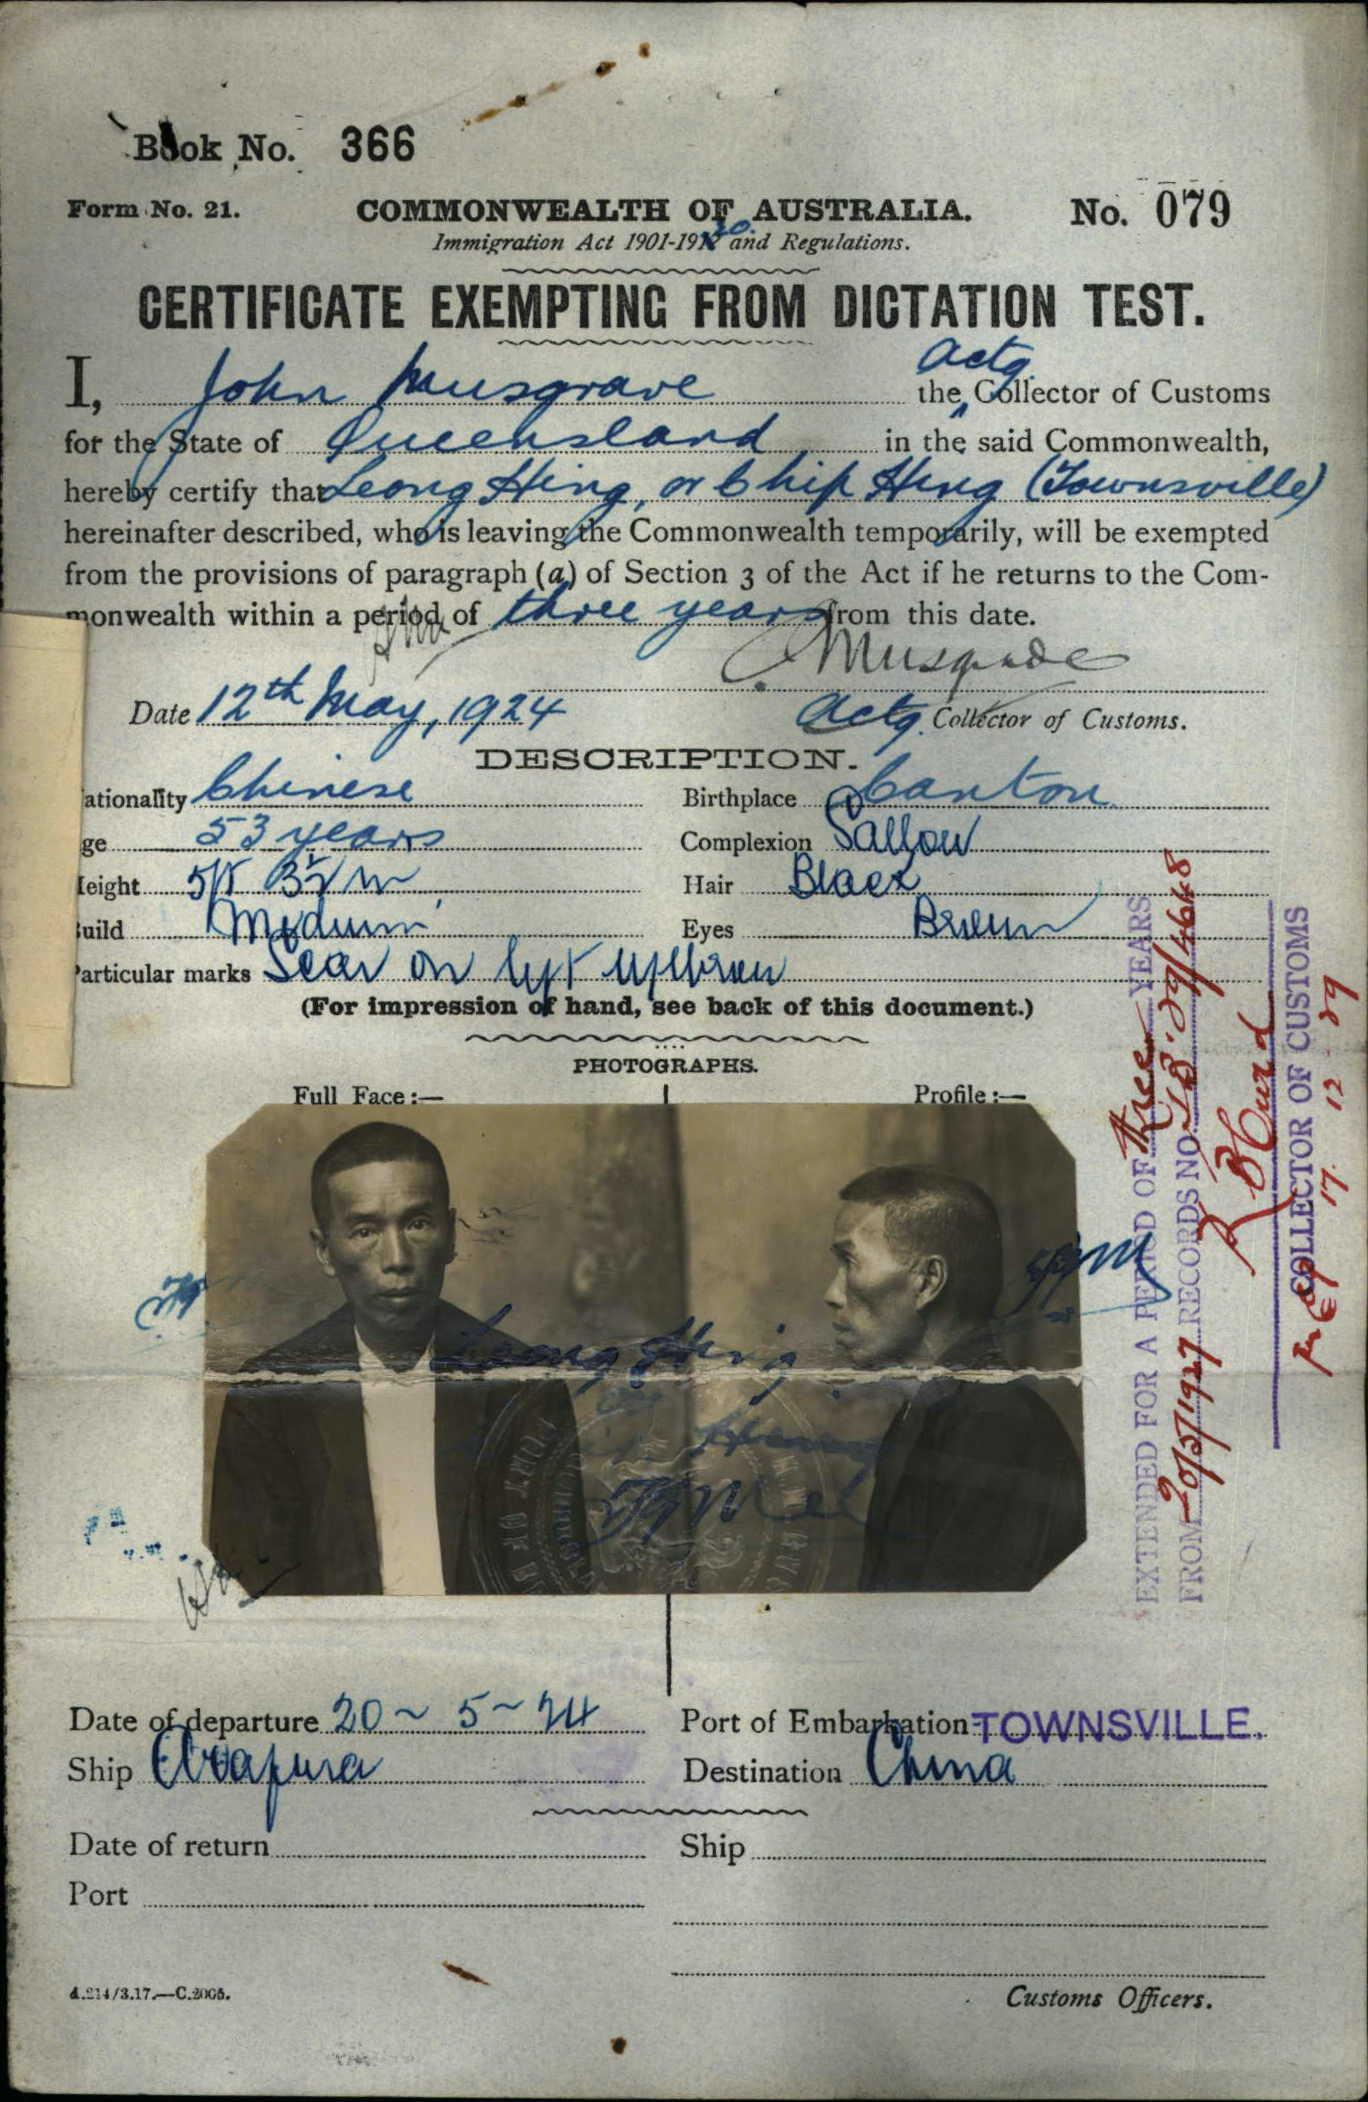 Book No. 366
Form No. 21. COMMONWEALTH OF AUSTRALIA. No. 079
Immigration Act 1901-1912 20. and Regulations.
CERTIFICATE EXEMPTING FROM DICTATION TEST.
I, John Musgrave the Actg. Collector of Customs
for the State of Queensland in the said Commonwealth,
hereby certify that Leong Hing, or Chip Hing (Townsville)
hereinafter described, who is leaving the Commonwealth temporarily, will be exempted
from the provisions of paragraph (a) of Section 3 of the Act if he returns to the Com-
monwealth within a period of three years from this date.
Musgrave
Date 12th May, 1924 Actg. Collector of Customs.
DESCRIPTION.
ationality Chinese Birthplace Canton
ge 53 years Complexion Sallow
eight 5ft 3½ in Hair Black
uild Medium Eyes Brown
articular marks Scar on left eyebrow
(For impression of hand, see back of this document.)
PHOTOGRAPHS.
Full Face:— Profile:—
Leong Hing
or
Hing
EXTENDED FOR A PERIOD OF three YEARS
FROM 20/5/1927 RECORDS NO.
COLLECTOR OF CUSTOMS
17.12.29
Date of departure 20~5~24 Port of Embarkation TOWNSVILLE.
Ship Arafura Destination China
Date of return Ship
Port
A.214/3.17.—C.2005. Customs Officers.